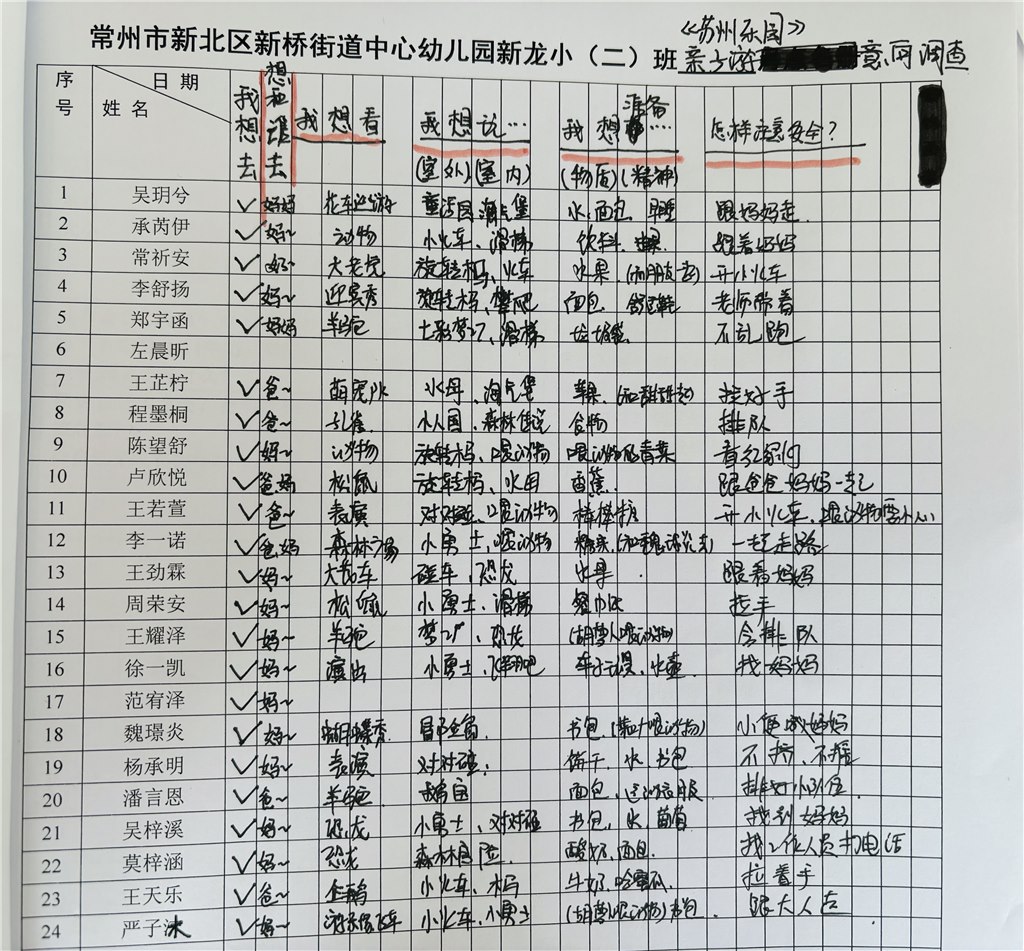 《苏州乐园》
常州市新北区新桥街道中心幼儿园新龙小（二）班亲子游意愿调查
序号 日期 姓名 我想去 想和谁去 我想看 我想说… 我想准备… 怎样注意安全？
(室外)(室内) (物质)(精神)
1 吴玥兮 ✓ 妈妈 花车巡游 童话园 淘气堡 水、面包 早睡 跟妈妈走
2 承芮伊 ✓ 妈~ 动物 小火车、滑梯 饮料、 跟着妈妈
3 常祈安 ✓ 妈~ 大老虎 旋转木马、火车 水果 开小火车
4 李舒扬 ✓ 妈~ 迎宾秀 旋转木马、攀爬 面包、舒服鞋 老师带着
5 郑宇函 ✓ 妈妈 羊驼 七彩梦工、滑梯 垃圾袋 不乱跑
6 左晨昕
7 王芷柠 ✓ 爸~ 萌宠队 水母、淘气堡 苹果、 拉好手
8 程墨桐 ✓ 爸~ 孔雀 小人国、森林传说 食物 排队
9 陈望舒 ✓ 妈~ 动物 旋转木马、喂动物 喂动物吃青菜 看红绿灯
10 卢欣悦 ✓ 爸妈 松鼠 旋转木马、水母 香蕉 跟爸爸妈妈一起
11 王若萱 ✓ 爸~ 表演 对对碰、喂动物 棒棒糖 开小火车、喂动物要小心
12 李一诺 ✓ 爸妈 森林广场 小勇士、喂动物 糖果、 一起走路
13 王劲霖 ✓ 妈~ 大花车 碰车、恐龙 水果 跟着妈妈
14 周荣安 ✓ 妈~ 松鼠 小勇士、滑梯 餐巾纸 拉手
15 王耀泽 ✓ 妈~ 羊驼 梦工厂、恐龙 (胡萝卜喂动物) 会排队
16 徐一凯 ✓ 妈~ 演出 小勇士、 车子玩具、水壶 找妈妈
17 范宥泽 ✓ 妈~
18 魏璟炎 ✓ 妈~ 蝴蝶秀 书包、(菜叶喂动物) 小便喊妈妈
19 杨承明 ✓ 妈~ 表演 对对碰 饼干、水、书包 不挤、不推
20 潘言恩 ✓ 爸~ 羊驼 面包、运动衣服 排好小队伍
21 吴梓溪 ✓ 妈~ 恐龙 小勇士、对对碰 书包、水、 找到妈妈
22 莫梓涵 ✓ 妈~ 恐龙 酸奶、面包 找工作人员打电话
23 王天乐 ✓ 爸~ 企鹅 小火车、木马 牛奶、哈蜜瓜 拉着手
24 严子沐 ✓ 妈~ 小火车、小勇士 (胡萝卜喂动物) 书包 跟大人走